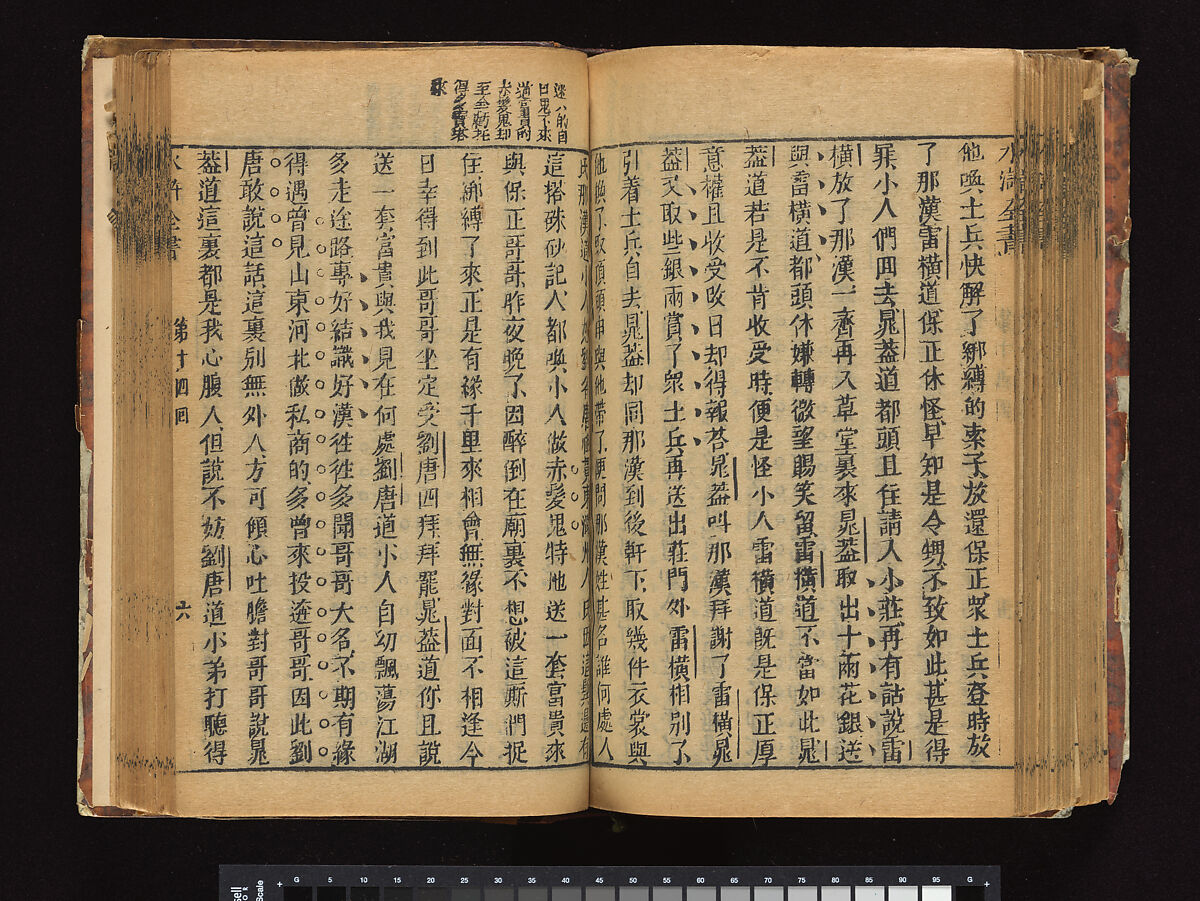 水滸全書
他喚土兵快解了綁縛的索子放還保正眾土兵登時放
了那漢雷橫道保正休怪早知是令甥不致如此甚是得
罪小人們回去晁蓋道都頭且住請入小莊再有話說雷
橫放了那漢一齊再入草堂裏來晁蓋取出十兩花銀送
與雷橫道都頭休嫌轉微望賜笑留雷橫道不當如此晁
蓋道若是不肯收受時便是怪小人雷橫道旣是保正厚
意權且收受改日却得報荅晁蓋叫那漢拜謝了雷橫晁
蓋又取些銀兩賞了眾土兵再送出莊門外雷橫相別了
引着土兵自去晁蓋却同那漢到後軒下取幾件衣裳與
他換了取頂頭巾與他帶了便問那漢姓甚名誰何處人
氏那漢道小人姓劉名唐
送一套富貴來
這搭硃砂記人都喚小人做赤髮鬼特地送一套富貴來
與保正哥哥昨夜晚了因醉倒在廟裏不想被這厮們捉
住綁縛了來正是有緣千里來相會無緣對面不相逢今
日幸得到此哥哥坐定受劉唐四拜拜罷晁蓋道你且說
送一套富貴與我見在何處劉唐道小人自幼飄蕩江湖
多走途路專好結識好漢徃徃多聞哥哥大名不期有緣
得遇曾見山東河北做私商的多曾來投逩哥哥因此劉
唐敢說這話這裏別無外人方可傾心吐膽對哥哥說晁
蓋道這裏都是我心腹人但說不妨劉唐道小弟打聽得
水滸全書 第十四回 六